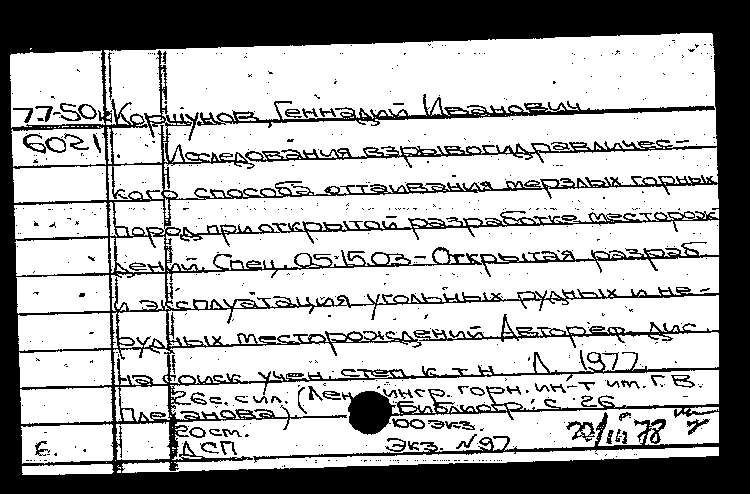 77-50к Коршунов, Геннадий Иванович.
6021 Исследования взрывогидравличес-
кого способа оттаивания мерзлых горных
пород при открытой разработке месторож
дений. Спец. 05.15.03 - Открытая разраб.
и эксплуатация угольных рудных и не-
рудных месторождений Автореф. дис.
на соиск. учен. степ. к. т. н. Л. 1977.
26с. с ил. (Ленингр. горн. ин-т им. Г.В.
Плеханова). Библиогр.: с. 26.
20см. 100 экз.
6. ДСП Экз. №97. 20/III 78